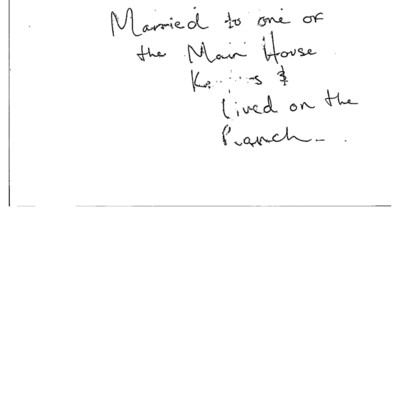 Married to one of
the Main House
&
lived on the
Ranch